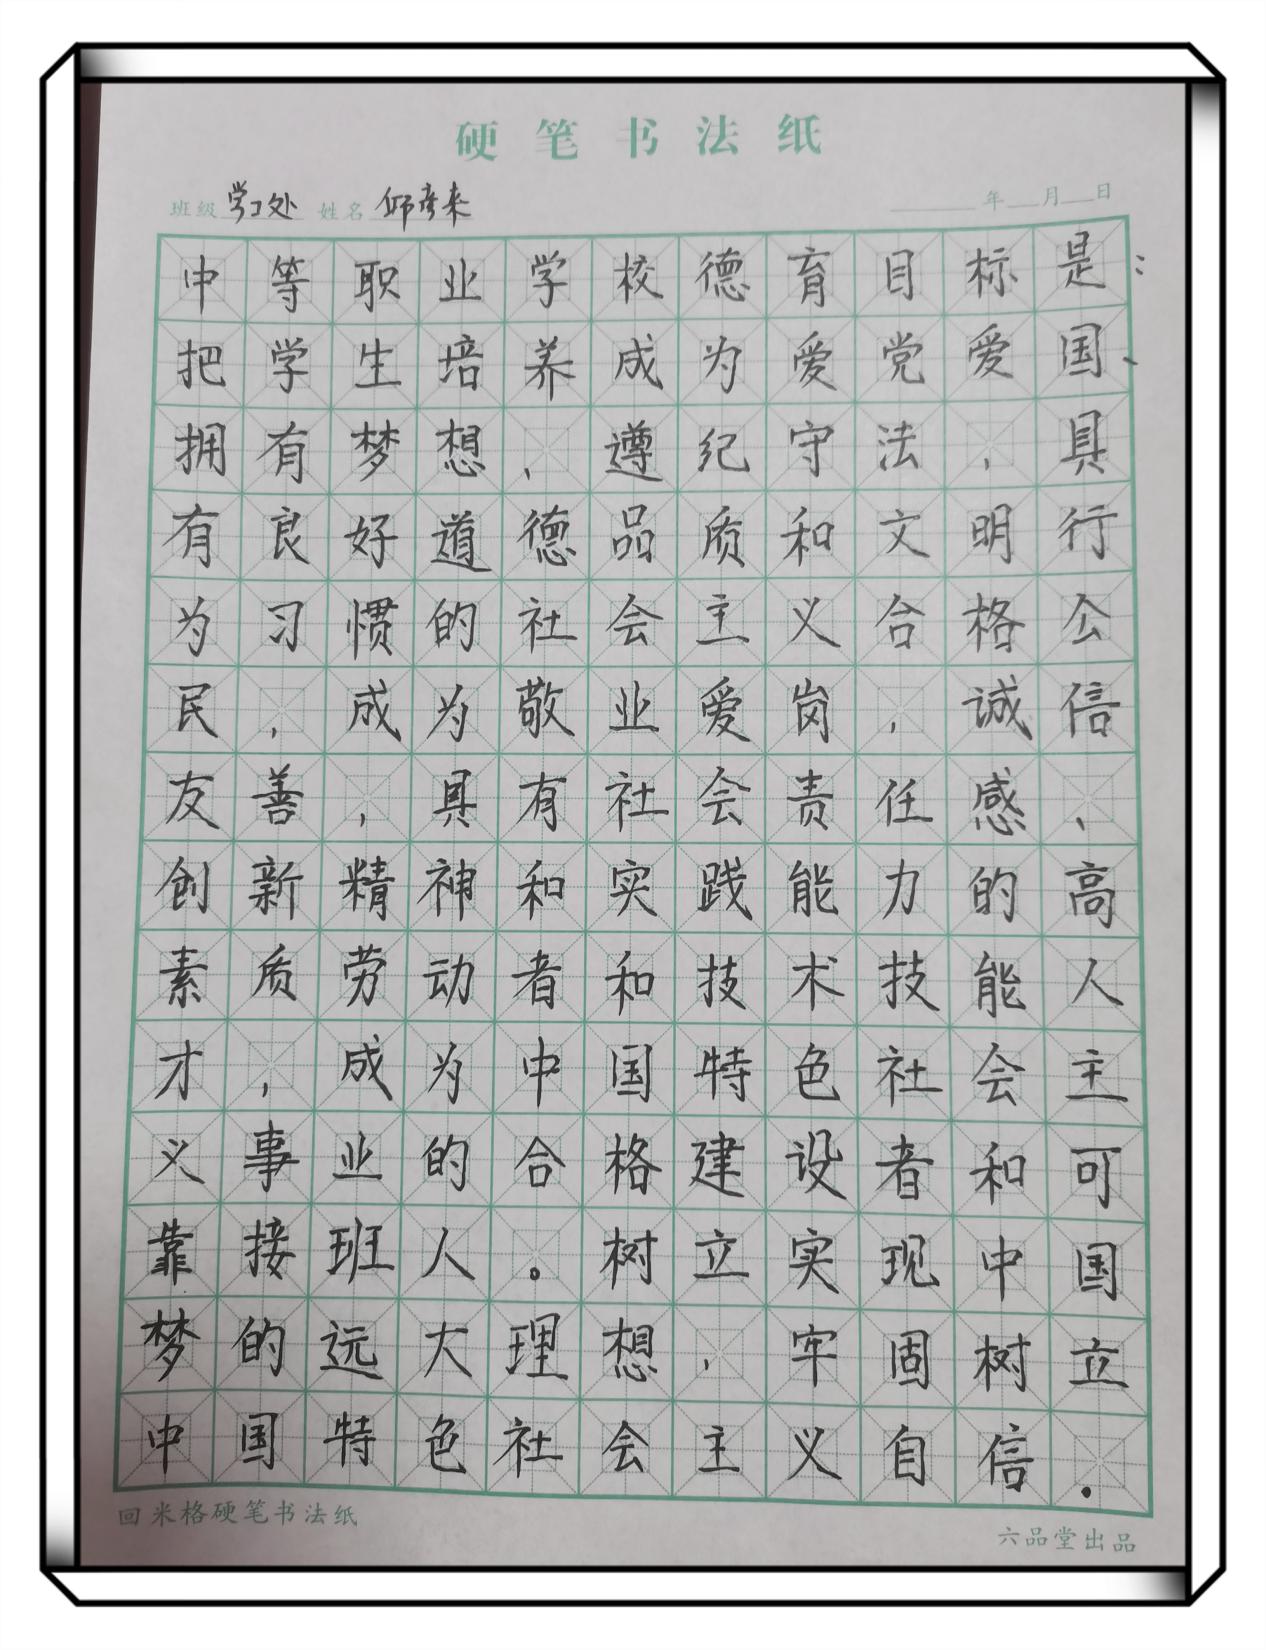 硬笔书法纸
班级 学工处 姓名 师彦来 年 月 日
中等职业学校德育目标是：
把学生培养成为爱党爱国、
拥有梦想、遵纪守法，具
有良好道德品质和文明行
为习惯的社会主义合格公
民，成为敬业爱岗，诚信
友善，具有社会责任感、
创新精神和实践能力的高
素质劳动者和技术技能人
才，成为中国特色社会主
义事业的合格建设者和可
靠接班人。树立实现中国
梦的远大理想，牢固树立
中国特色社会主义自信.
回米格硬笔书法纸
六品堂出品